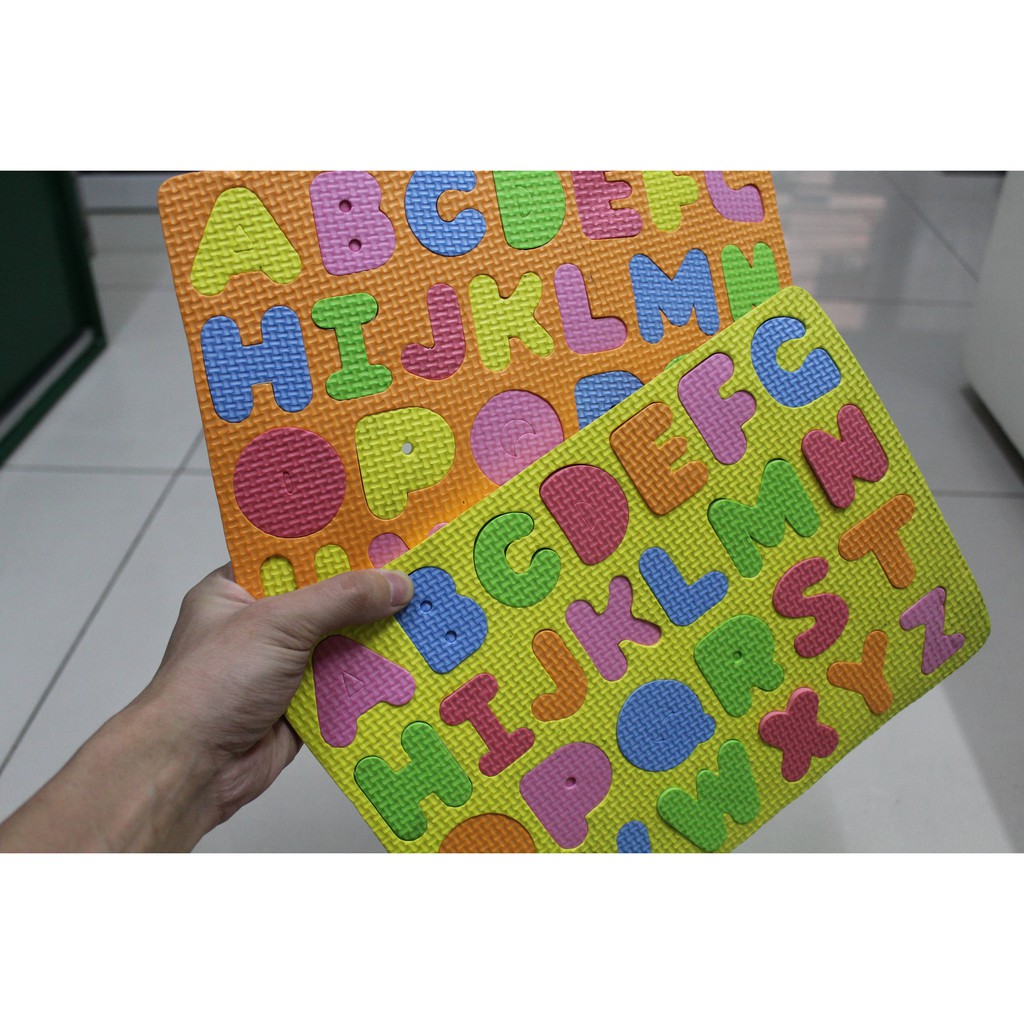 A B C D E F G
H I J K L M N
O P Q
A B C D E F G
H I J K L M N
O P Q R S T
W X Y Z